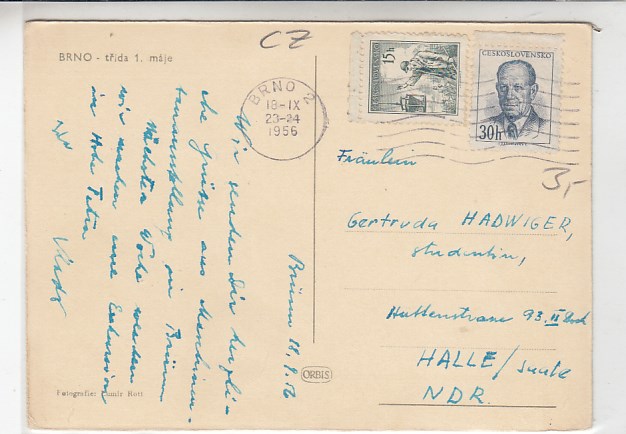 BRNO - třída 1. máje
CZ
15h
ČESKOSLOVENSKO
30h
BRNO 2
18-IX
23-24
1956
3,-
Brünn 18.9.56
Wir senden Dir herzli-
che Grüsse aus Maschinen-
ausstellung in Brünn
Nächste Woche werden
wir machen eine Exkursion
in Hohe Tatra
Fräulein
Gertruda HADWIGER,
studentin,
Huttenstrasse 93. II
HALLE/Saale
NDR.
ORBIS
Fotografie: Rott